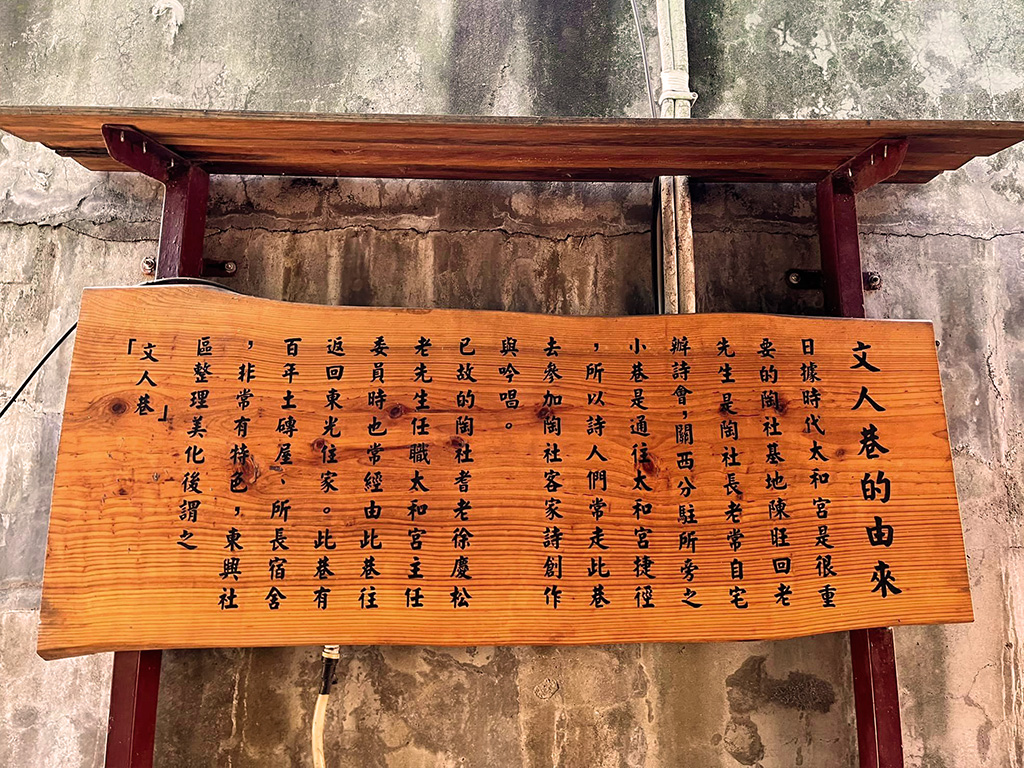 文人巷的由來
日據時代太和宮是很重
要的陶社基地陳旺回老
先生是陶社長老常自宅
辦詩會，關西分駐所旁之
小巷是通往太和宮捷徑
，所以詩人們常走此巷
去參加陶社客家詩創作
與吟唱。
已故的陶社耆老徐慶松
老先生任職太和宮主任
委員時也常經由此巷往
返回東光住家。此巷有
百年土磚屋、所長宿舍
，非常有特色，東興社
區整理美化後謂之
「文人巷」